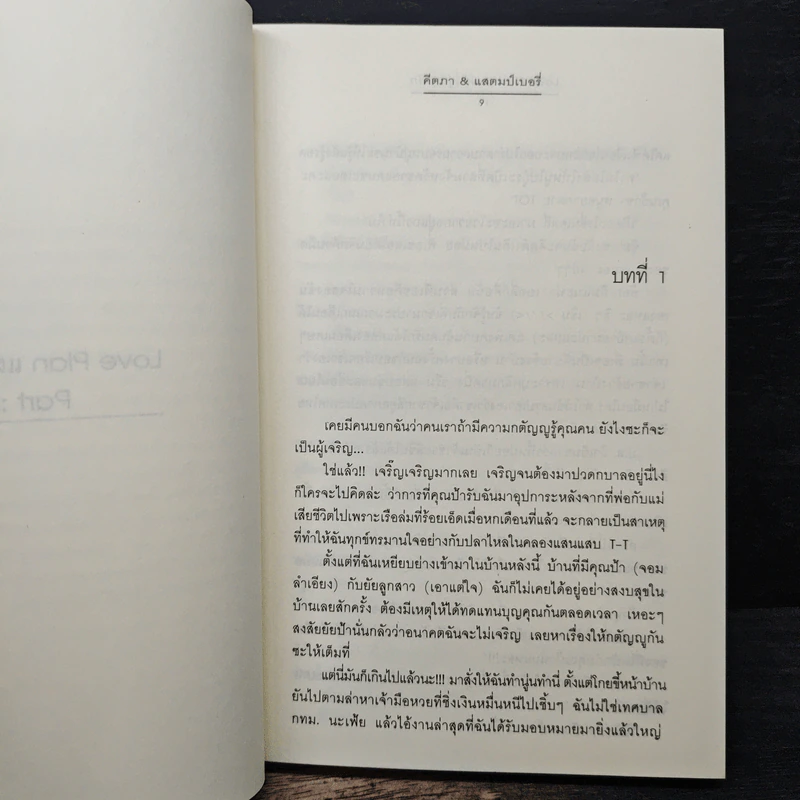 คีตภา & แสตมป์เบอรี่
9
บทที่ 1
เคยมีคนบอกฉันว่าคนเราถ้ามีความกตัญญูรู้คุณคน ยังไงซะก็จะ
เป็นผู้เจริญ...
ใช่แล้ว!! เจริ๊ญเจริญมากเลย เจริญจนต้องมาปวดกบาลอยู่นี่ไง
ก็ใครจะไปคิดล่ะ ว่าการที่คุณป้ารับฉันมาอุปการะหลังจากที่พ่อกับแม่
เสียชีวิตไปเพราะเรือล่มที่ร้อยเอ็ดเมื่อหกเดือนที่แล้ว จะกลายเป็นสาเหตุ
ที่ทำให้ฉันทุกข์ทรมานใจอย่างกับปลาไหลในคลองแสนแสบ T-T
ตั้งแต่ที่ฉันเหยียบย่างเข้ามาในบ้านหลังนี้ บ้านที่มีคุณป้า (จอม
ลำเอียง) กับยัยลูกสาว (เอาแต่ใจ) ฉันก็ไม่เคยได้อยู่อย่างสงบสุขใน
บ้านเลยสักครั้ง ต้องมีเหตุให้ได้ทดแทนบุญคุณกันตลอดเวลา เหอะๆ
สงสัยยัยป้านั่นกลัวว่าอนาคตฉันจะไม่เจริญ เลยหาเรื่องให้กตัญญูกัน
ซะให้เต็มที่
แต่นี่มันก็เกินไปแล้วนะ!!! มาสั่งให้ฉันทำนู่นทำนี่ ตั้งแต่โกยขี้หน้าบ้าน
ยันไปตามล่าหาเจ้ามือหวยที่ซิ่งเงินหมื่นหนีไปเชิ้บๆ ฉันไม่ใช่เทศบาล
กทม. นะเฟ้ย แล้วไอ้งานล่าสุดที่ฉันได้รับมอบหมายมายิ่งแล้วใหญ่